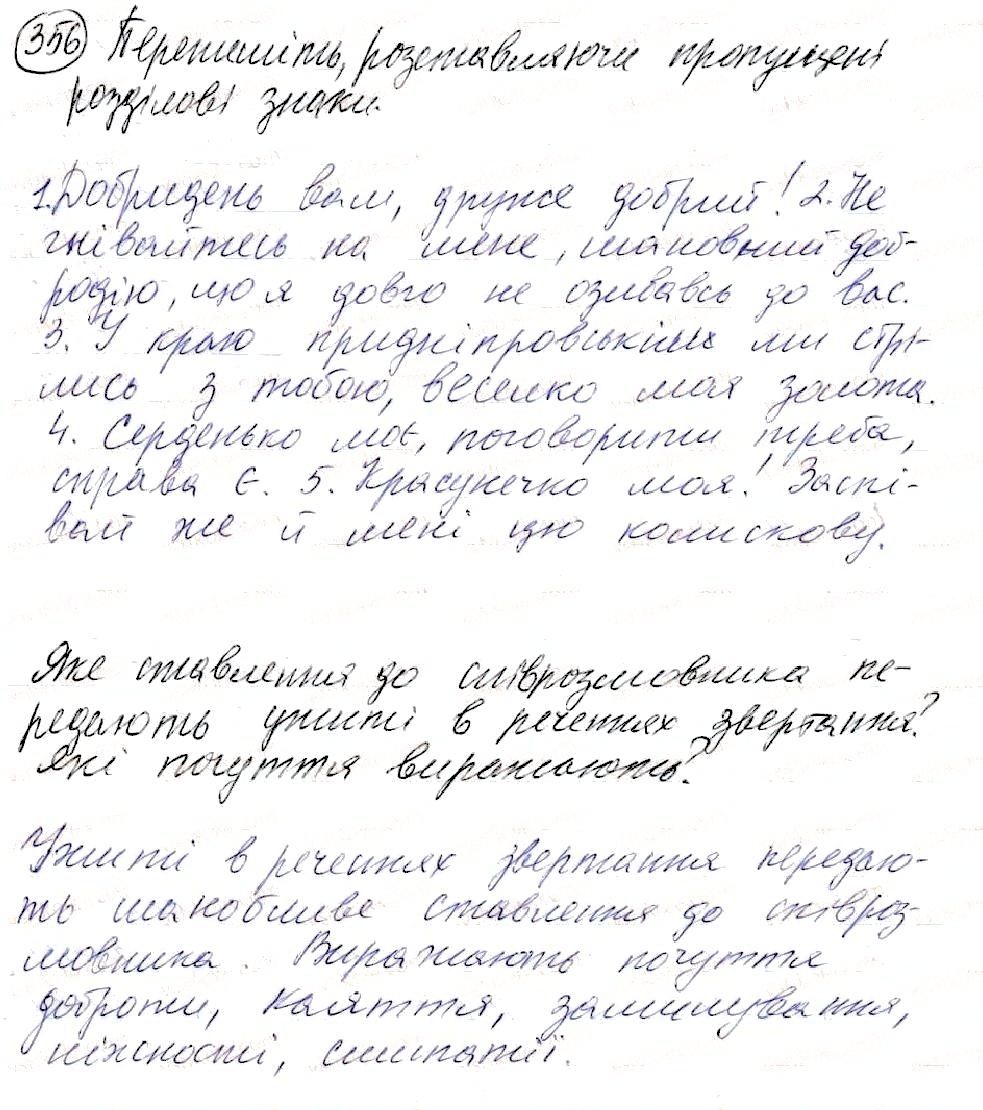 356 Перепишіть, розставляючи пропущені
розділові знаки.
1. Добридень вам, друже добрий! 2. Не
гнівайтесь на мене, шановний доб-
родію, що я довго не озивавсь до вас.
3. У краю придніпровських ми стрі-
лись з тобою, веселко моя золота.
4. Серденько моє, поговорити треба,
справа є. 5. Красунечко моя! Заспі-
вай же й мені цю колискову.
Яке ставлення до співрозмовника пе-
редають ужиті в реченнях звертання?
Які почуття виражають?
Ужиті в реченнях звертання передаю-
ть шанобливе ставлення до співроз-
мовника. Виражають почуття
доброти, каяття, замилування,
ніжності, симпатії.